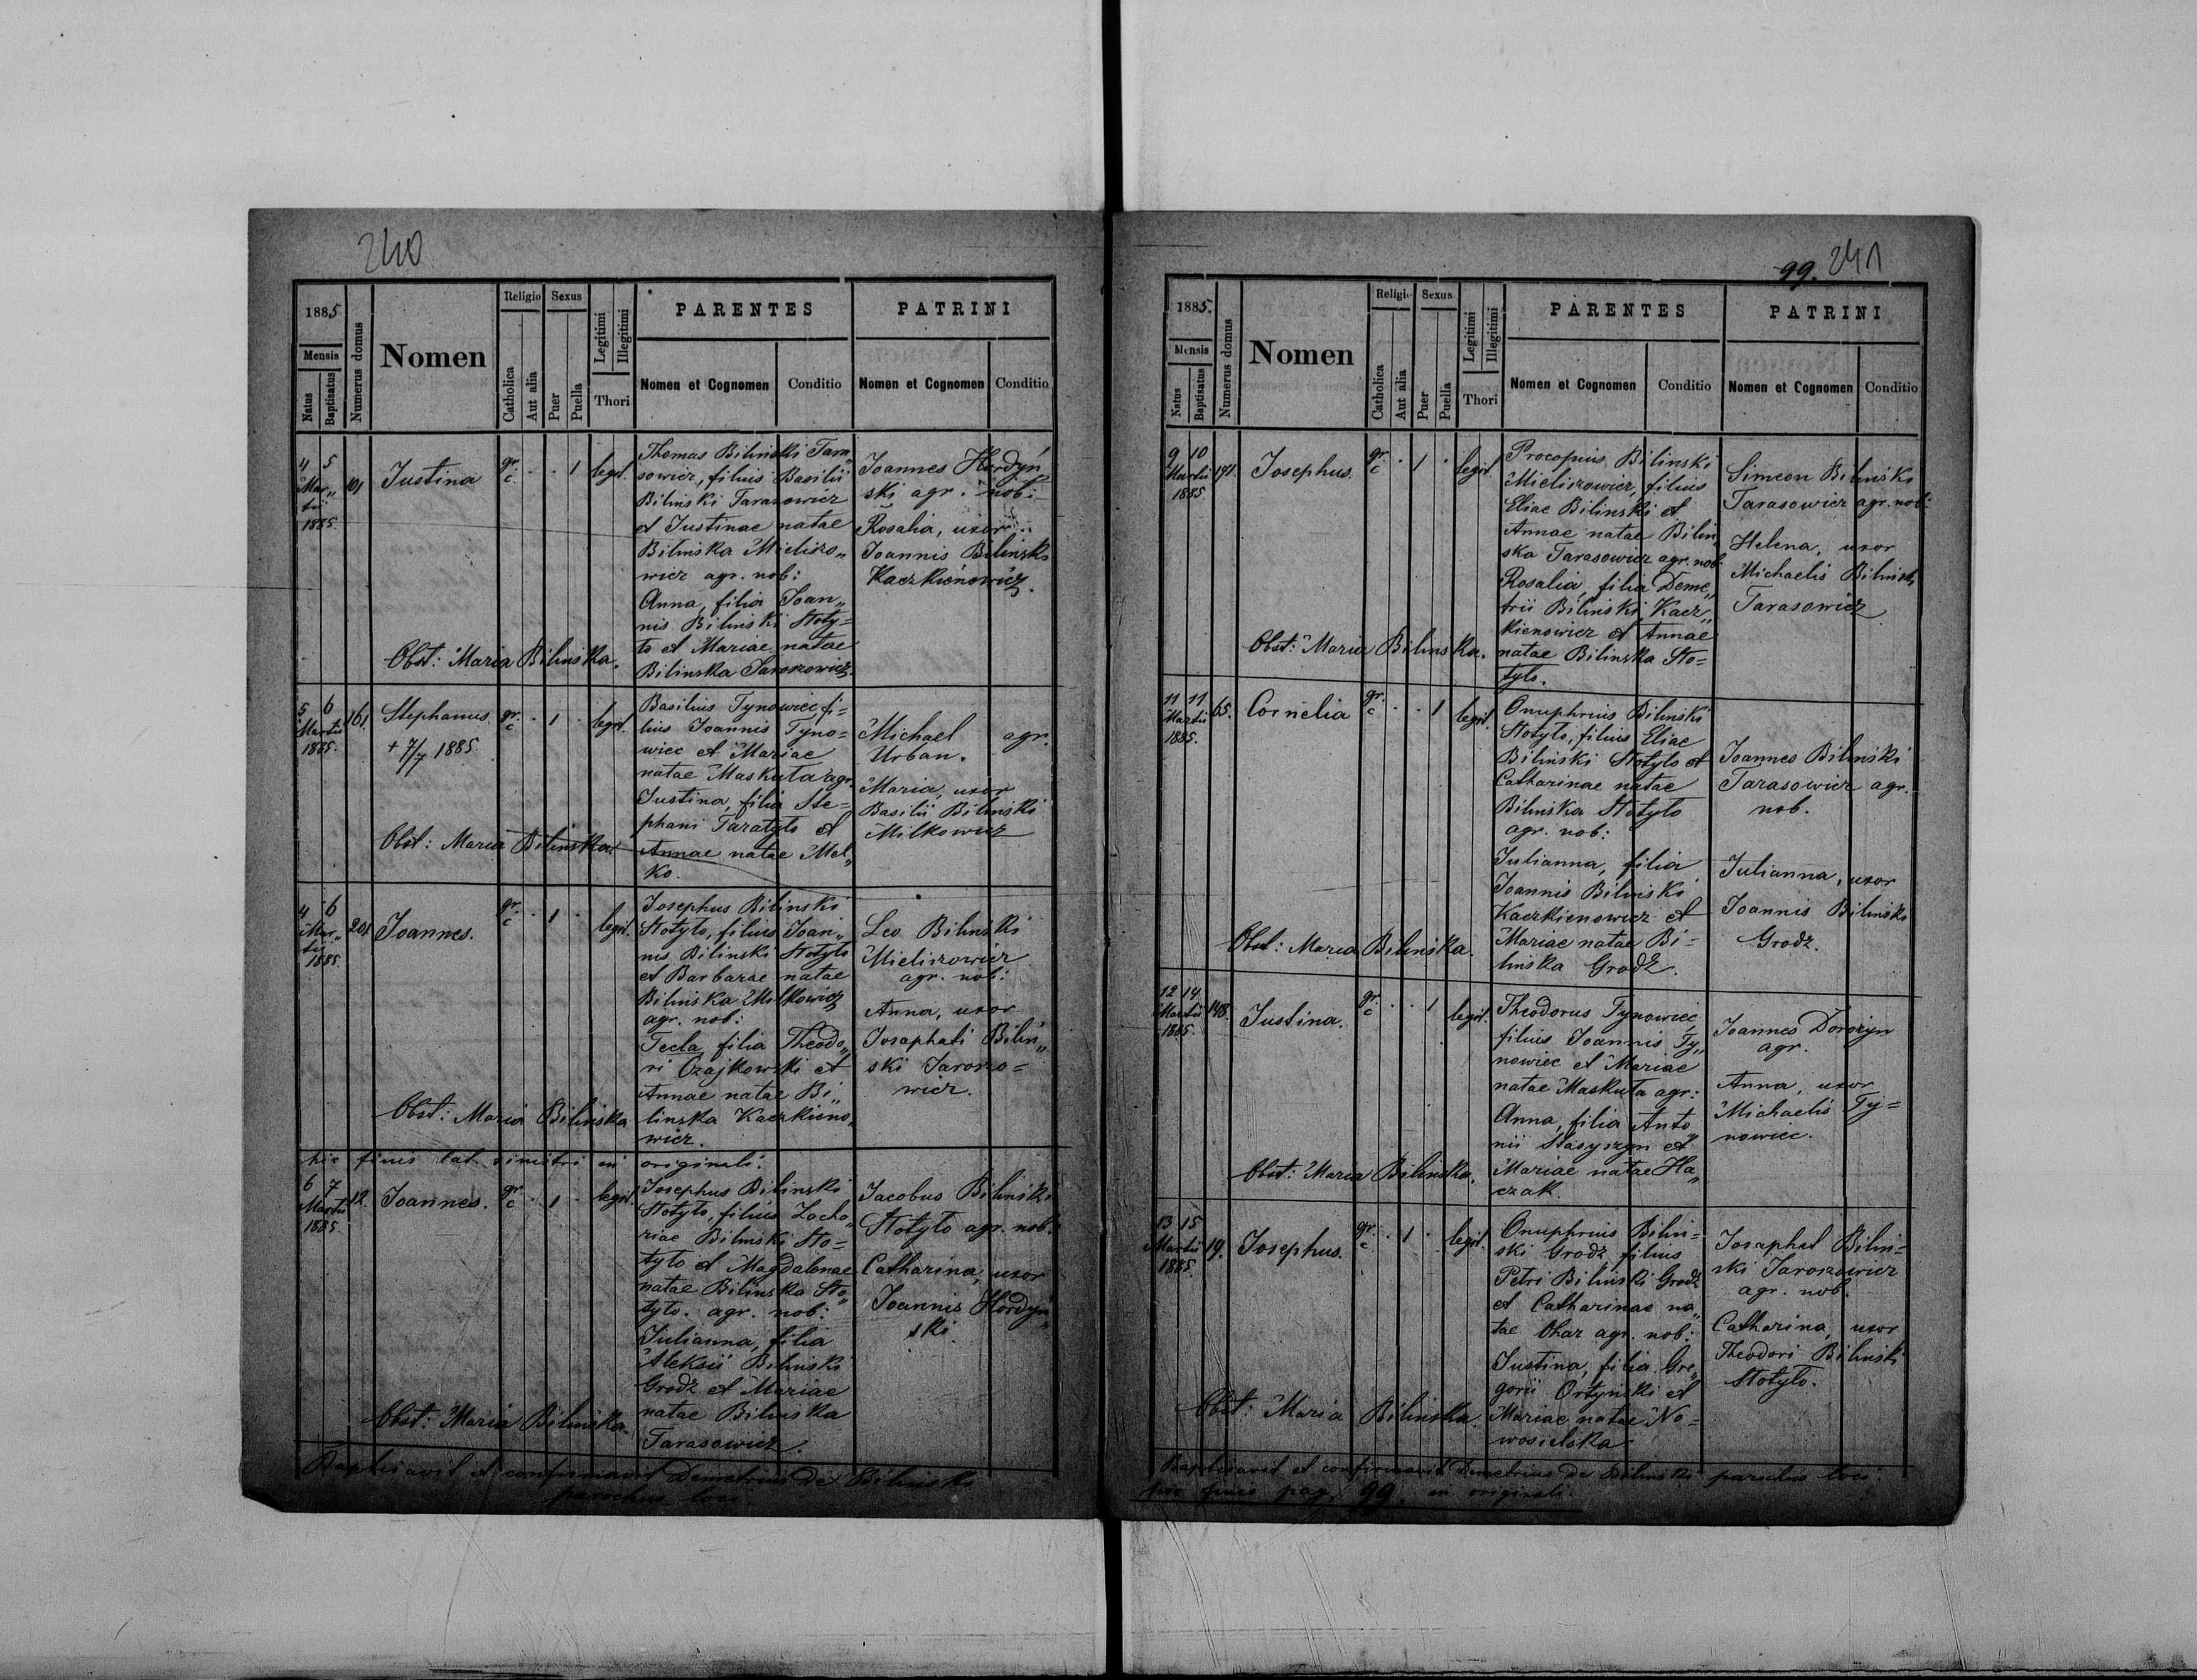 240
1885
Religio Sexus
Legitimi Illegitimi
PARENTES
PATRINI
Mensis
Numerus domus
Nomen
Natus
Baptisatus
Catholica
Aut alia
Puer
Puella
Thori
Nomen et Cognomen
Conditio
Nomen et Cognomen
Conditio
4 5
Mar„
tii
1885
101
Justina
gr.
c.
1
legit.
Thomas Bilinski Tara„
sowicz, filius Basilii
Bilinski Tarasowicz
et Justinae natae
Bilinska Mieliszo„
wicz agr. nob:
Anna, filia Joan„
nis Bilinski Stoty=
to et Mariae natae
Bilinska Jaroszowicz.
Joannes Hordyń
ski agr. nob:
Rosalia, uxor
Joannis Bilinski
Kaczkienowicz.
Obst: Maria Bilinska.
5 6
Martii
1885.
161
Stephanus.
+ 7/7 1885.
gr.
c
1
legit.
Basilius Tynowiec fi=
lius Joannis Tyno=
wiec et Mariae
natae Maskuta agr.
Justina, filia Ste=
phani Taratyto et
Annae natae Mel„
ko.
Michael agr.
Urban.
Maria, uxor
Basilii Bilinski
Milkowicz
Obst: Maria Bilinska.
4 6
Mar„
tii
1885.
201
Joannes.
gr.
c
1
legit.
Josephus Bilinski
Stotyto, filius Joan„
nis Bilinski Stotyto
et Barbarae natae
Bilinska Milkowicz
agr. nob:
Tecla, filia Theodo„
ri Czajkowski et
Annae natae Bi„
linska Kaczkieno„
wicz.
Leo Bilinski
Mieliszowicz
agr. nob:
Anna, uxor
Josaphati Bilin„
ski Jaroszo=
wicz.
Obst: Maria Bilinska
hic finis lat. sinistri in originali.
6 7
Martii
1885.
12.
Joannes.
gr.
c
1
legit.
Josephus Bilinski
Stotyto, filius Zacha„
riae Bilinski Sto=
tyto et Magdalenae
natae Bilinska Sto„
tyto. agr. nob:
Julianna, filia
Aleksii Bilinski
Grodz et Mariae
natae Bilinska
Tarasowicz.
Jacobus Bilinski
Stotyto agr. nob:
Catharina, uxor
Joannis Hordyń„
ski
Obst: Maria Bilinska.
Baptisavit et confirmavit Demetrius de Bilinski
parochus loci.
99. 241
1885.
Religio Sexus
Legitimi Illegitimi
PARENTES
PATRINI
Mensis
Numerus domus
Nomen
Natus
Baptisatus
Catholica
Aut alia
Puer
Puella
Thori
Nomen et Cognomen
Conditio
Nomen et Cognomen
Conditio
9 10
Martii
1885
191.
Josephus.
gr.
c
1
legit.
Procopius Bilinski
Mieliszowicz, filius
Eliae Bilinski et
Annae natae Bilin„
ska Tarasowicz agr. nob
Rosalia, filia Deme„
trii Bilinski Kacz„
kienowicz et Annae
natae Bilinska Sto=
tyto.
Simeon Bilinski
Tarasowicz agr. nob:
Helena, uxor
Michaelis Bilinski
Tarasowicz
Obst: Maria Bilinska.
11 11
Martii
1885.
65.
Cornelia
gr.
c
1
legit.
Onuphrius Bilinski
Stotyto, filius Eliae
Bilinski Stotyto et
Catharinae natae
Bilinska Stotyto
agr. nob:
Julianna, filia
Joannis Bilinski
Kaczkienowicz et
Mariae natae Bi=
linska Grodz.
Joannes Bilinski
Tarasowicz agr.
nob.
Julianna, uxor
Joannis Bilinski
Grodz.
Obst: Maria Bilinska.
12 14
Martii
1885.
148.
Justina.
gr.
c
1
legit.
Theodorus Tynowiec,
filius Joannis Ty„
nowiec et Mariae
natae Maskuta agr:
Anna, filia Anto„
nii Stasyszyn et
Mariae natae Ha„
czak.
Joannes Dorożyn
agr.
Anna, uxor
Michaelis Ty=
nowiec.
Obst: Maria Bilinska.
13 15
Martii
1885.
19.
Josephus.
gr.
c
1
legit.
Onuphrius Bilin=
ski Grodz filius
Petri Bilinski Grodz
et Catharinae na„
tae Ohar agr. nob:
Justina, filia Gre„
gorii Ortynski et
Mariae natae No=
wosielska
Josaphat Bilin=
ski Jaroszowicz
agr. nob.
Catharina, uxor
Theodori Bilinski
Stotyto.
Obst: Maria Bilinska.
Baptisavit et confirmavit Demetrius de Bilinski parochus loci.
hic finis pag. 99. in originali.